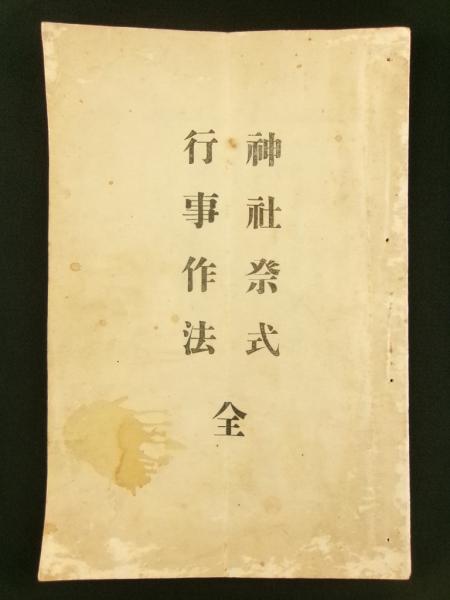 神社祭式
行事作法
全